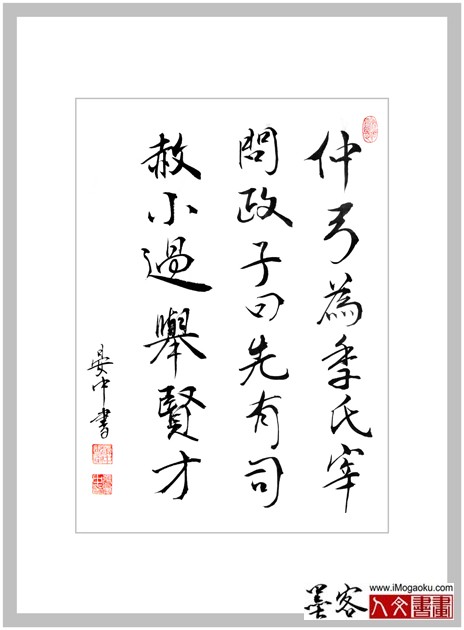 仲弓為季氏宰
問政子曰先有司
赦小過舉賢才
晏中書
墨客
www.iMogaoku.com
人文書畫